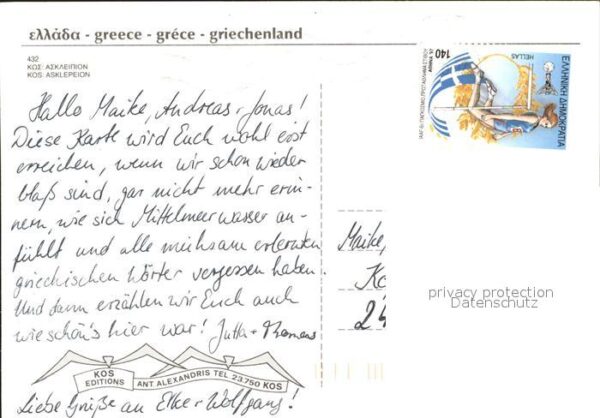 ελλάδα - greece - gréce - griechenland
432
ΚΩΣ: ΑΣΚΛΕΙΠΙΟΝ
KOS: ASKLEPEION
Hallo Maike, Andreas + Jonas!
Diese Karte wird Euch wohl erst
erreichen, wenn wir schon wieder
blaß sind, gar nicht mehr erin-
nern, wie sich Mittelmeerwasser an-
fühlt und alle mühsam erlernten
griechischen Wörter vergessen haben.
Und dann erzählen wir Euch auch
wie schön's hier war! Jutta + Thomas
KOS
EDITIONS
ANT ALEXANDRIS TEL 23.750 KOS
Liebe Grüße an Elke + Wolfgang!
140
HELLAS
ΕΛΛΗΝΙΚΗ ΔΗΜΟΚΡΑΤΙΑ
Maike,
Ko
24
privacy protection
Datenschutz